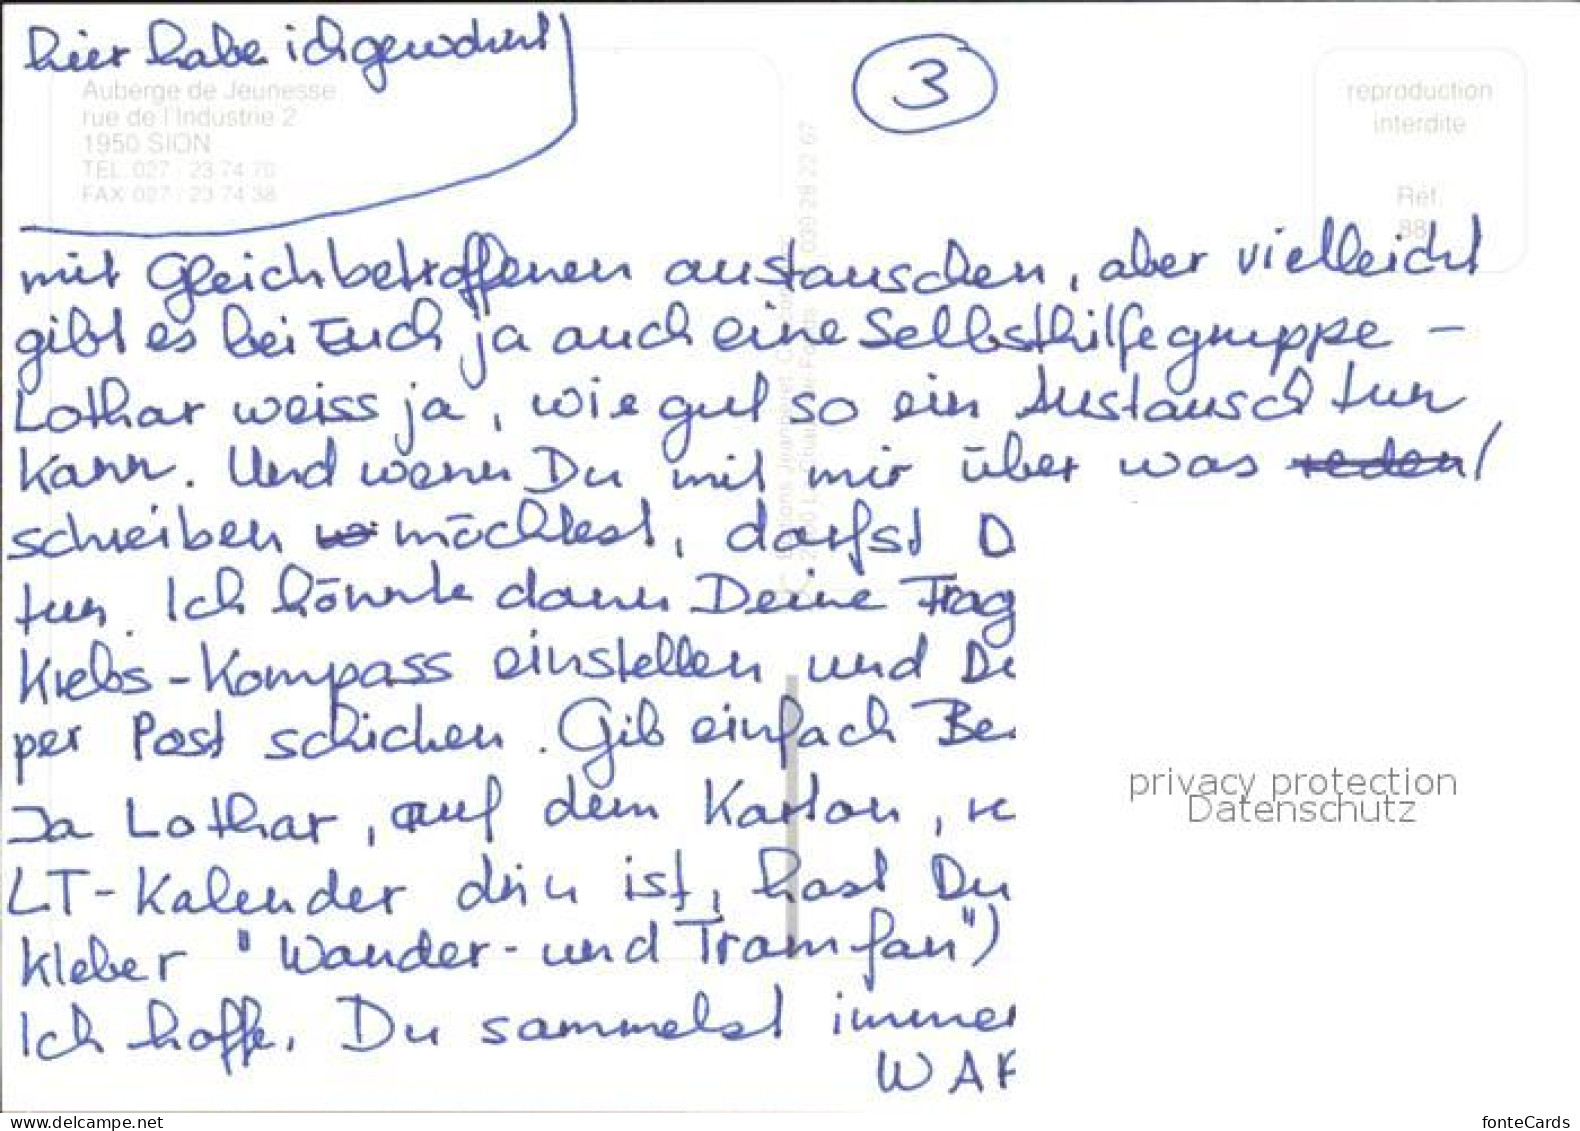 hier habe ich gewohnt
3
Auberge de Jeunesse
rue de l'Industrie 2
1950 SION
TEL. 027 / 23 74 70
FAX 027 / 23 74 38
reproduction
interdite
Réf.
88
mit Gleichbetroffenen austauschen, aber vielleicht
gibt es bei Euch ja auch eine Selbsthilfegruppe –
Lothar weiss ja, wie gut so ein Austausch tun
kann. Und wenn Du mit mir über was reden/
schreiben möchtest, darfst D
tun. Ich könnte dann Deine Frag
Krebs-Kompass einstellen und D
per Post schicken. Gib einfach Be
Ja Lothar, auf dem Karton,
LT-Kalender drin ist, hast Du
kleber "Wander- und Tramfan")
Ich hoffe, Du sammelst immer
WAF
039 28 22 67
privacy protection
Datenschutz
www.delcampe.net
fonteCards